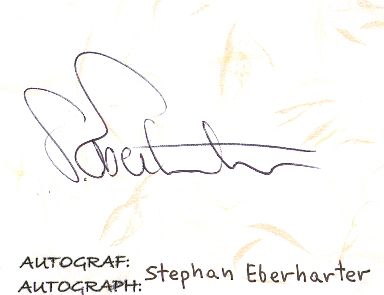 S. Eberharter
AUTOGRAF:
AUTOGRAPH: Stephan Eberharter